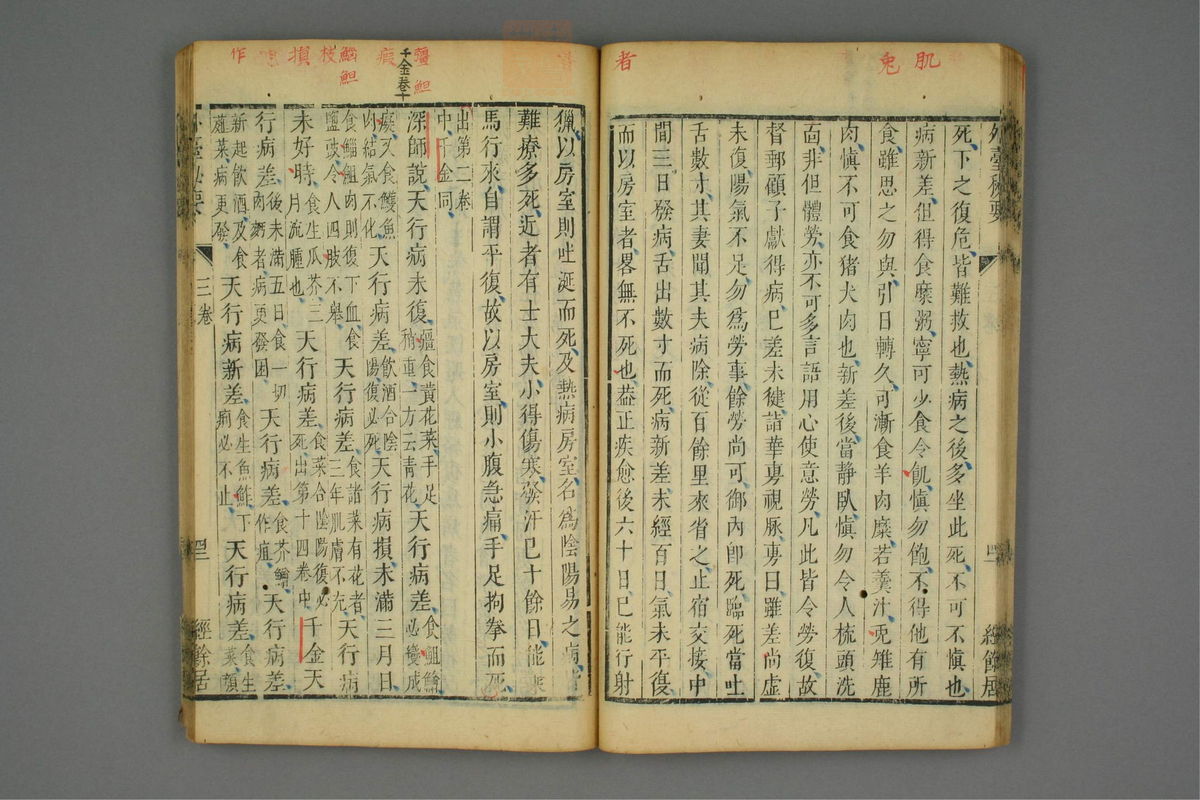 肌
兔
者
外臺秘要
死下之復危皆難救也熱病之後多坐此死不可不慎也
病新差但得食糜粥寧可少食令飢慎勿飽不得他有所
食雖思之勿與引日轉久可漸食羊肉糜若羹汁兎雉鹿
肉慎不可食猪犬肉也新差後當静臥慎勿令人梳頭洗
面非但體勞亦不可多言語用心使意勞凡此皆令勞復故
督郵顧子獻得病已差未健詣華旉視脉旉曰雖差尚虛
未復陽氣不足勿為勞事餘勞尚可御内即死臨死當吐
舌數寸其妻聞其夫病除從百餘里來省之止宿交接中
間三日發病舌出數寸而死病新差未經百日氣未平復
而以房室者畧無不死也葢正疾愈後六十日已能行射
經餘居
疸 䱇
千金卷十
瘕
䲡䱇
枝
損
作
獵以房室則吐涎而死及熱病房室名為陰陽易之病
難療多死近者有士大夫小得傷寒發汗已十餘日能乘
馬行來自謂平復故以房室則小腹急痛手足拘拳而死
出第二卷
中千金同
深師說天行病未復
食黃花菜手足
稍重一方云青花
天行病差
食䱇鱠
必變成
瘕又食鱧魚
肉結氣不化
天行病差
飲酒合陰
陽復必死
天行病損未滿三月日
食䲡䱇肉則復下血食
鹽豉令人四肢不舉
天行病差
食諸菜有花者
三年肌膚不充
天行病
未好時
食生瓜芥三
月流腫也
天行病差
食菜合陰陽復必
死出第十四卷中
千金天
行病差後未滿五日食一切
肉麪者病更發困
天行病差
食芥鱠
作疽
天行病差
新起飲酒及食
薤菜病更發
天行病新差
食生魚鮓下
痢必不止
天行病差
食生
菜顏
外臺秘要
三卷
經餘居